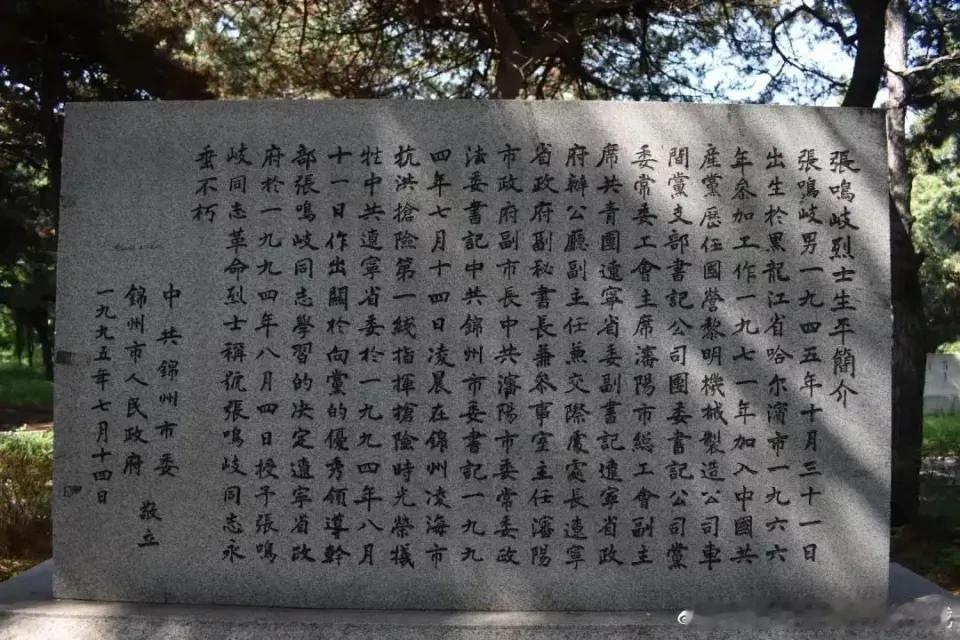 張鳴岐烈士生平簡介
張鳴岐男一九四五年十月三十一日
出生於黑龍江省哈尔濱市一九六六
年参加工作一九七一年加入中國共
産黨歷任國營黎明機械製造公司車
間黨支部書記公司團委書記公司黨
委常委工會主席瀋陽市総工會副主
席共青團遼寧省委副書記遼寧省政
府辦公廳副主任兼交際處處長遼寧
省政府副秘書長兼参事室主任瀋陽
市政府副市長中共瀋陽市委常委政
法委書記中共錦州市委書記一九九
四年七月十四日凌晨在錦州凌海市
抗洪搶險第一綫指揮搶險時光榮犠
牲中共遼寧省委於一九九四年八月
十一日作出關於向黨的優秀領導幹
部張鳴岐同志學習的决定遼寧省政
府於一九九四年八月四日授予張鳴
岐同志革命烈士稱號張鳴岐同志永
垂不朽
中共錦州市委
錦州市人民政府
敬立
一九九五年七月十四日